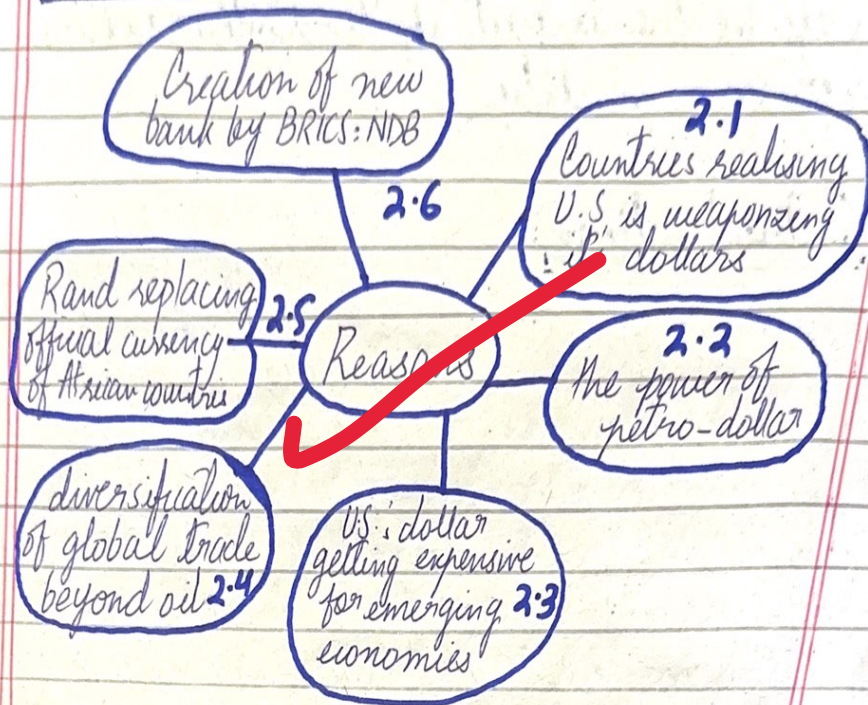 Creation of new
bank by BRICS: NDB
2.6
2.1
Countries realising
U.S. is weaponzing
it' dollars
Rand replacing
official currency
of African countries
2.5
Reasons
2.2
the power of
petro-dollar
diversification
of global trade
beyond oil 2.4
U.S.' dollar
getting expensive
for emerging 2.3
economies